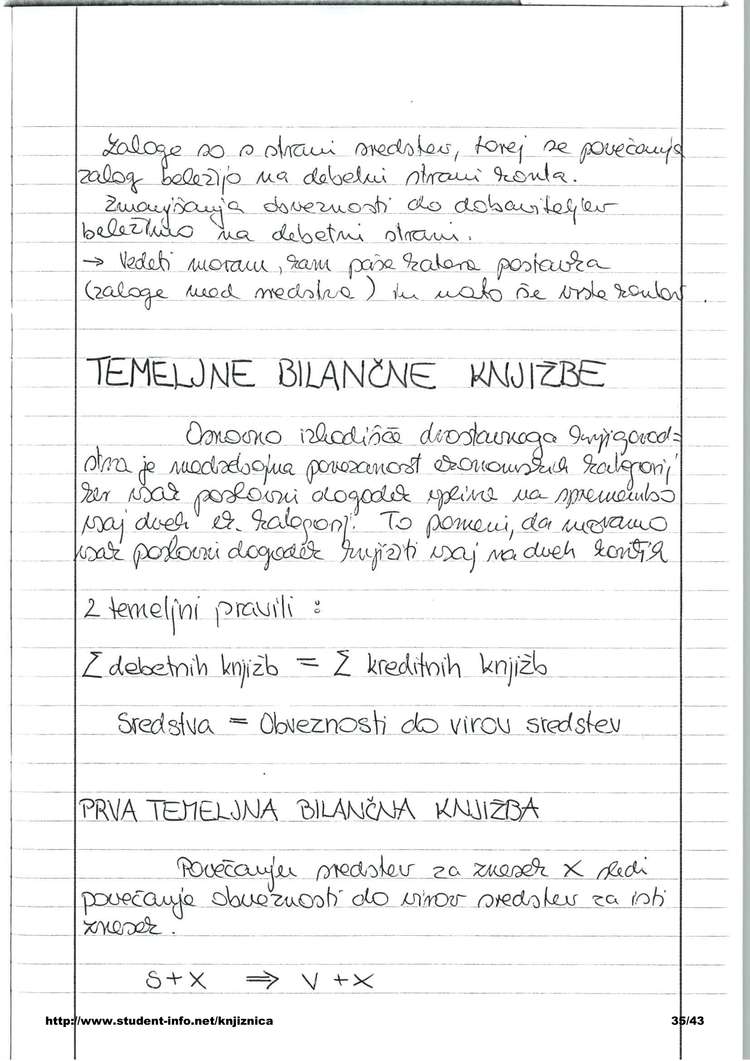 Zaloge so s strani sredstev, torej se povečanja
zalog beležijo na debetni strani konta.
Zmanjšanja obveznosti do dobaviteljev
beležimo na debetni strani.
→ Vedeti moram, kam paše katera postavka
(zaloge med sredstva) in nato še vrste kontov.
TEMELJNE BILANČNE KNJIŽBE
Osnovno izhodišče dvostavnega knjigovod=
stva je medsebojna povezanost ekonomskih kategorij,
ker vsak poslovni dogodek vpliva na spremembo
vsaj dveh ek. kategorij. To pomeni, da moramo
vsak poslovni dogodek knjižiti vsaj na dveh kontih
2 temeljni pravili :
Σ debetnih knjižb = Σ kreditnih knjižb
Sredstva = Obveznosti do virov sredstev
PRVA TEMELJNA BILANČNA KNJIŽBA
Povečanju sredstev za znesek X sledi
povečanje obveznosti do virov sredstev za isti
znesek.
S+X ⇒ V+X
http://www.student-info.net/knjiznica 35/43